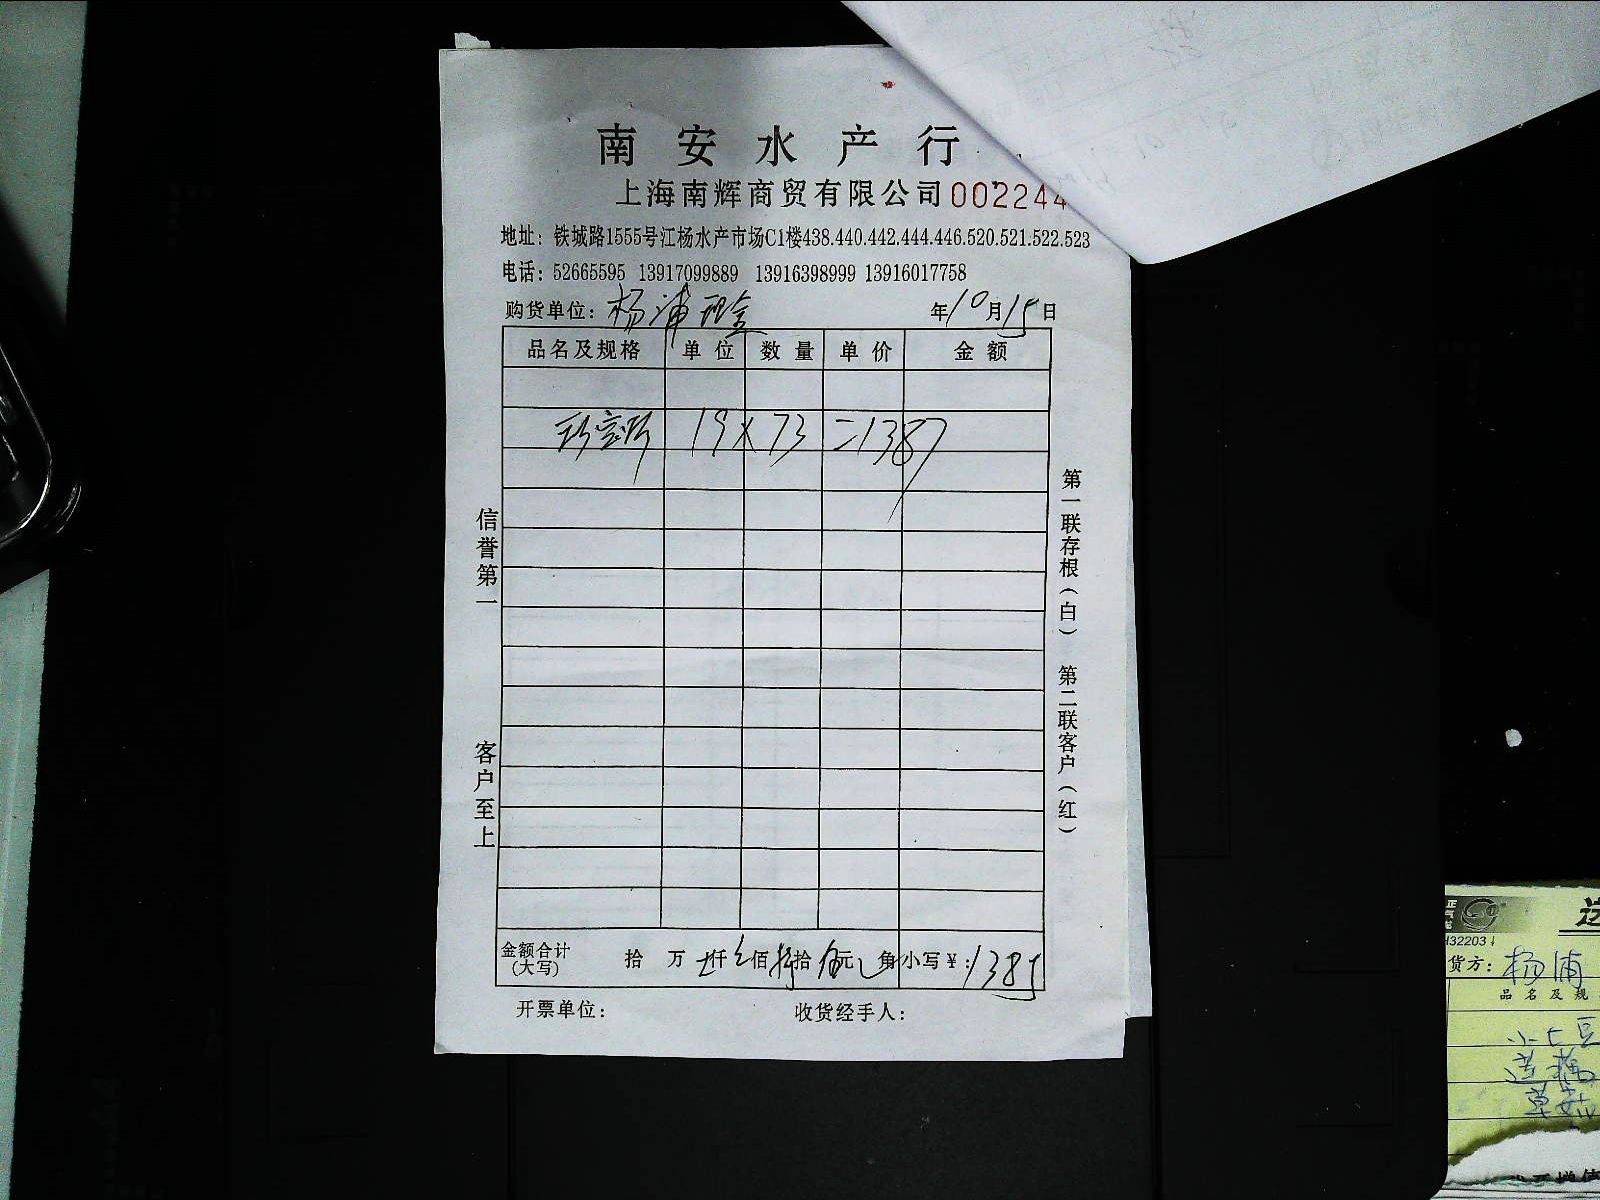 南安水产行
上海南辉商贸有限公司 002244
地址：铁城路1555号江杨水产市场C1楼438.440.442.444.446.520.521.522.523
电话：52665595 13917099889 13916398999 13916017758
购货单位：杨浦现金 年10月15日
品名及规格 单位 数量 单价 金额
珍宝 19×73=1387
信誉第一
客户至上
第一联存根（白） 第二联客户（红）
金额合计（大写） 拾 万 仟 佰 拾 伍元 角 小写￥：1385
开票单位： 收货经手人：
H32203
货方：杨浦
品名及规
草菇